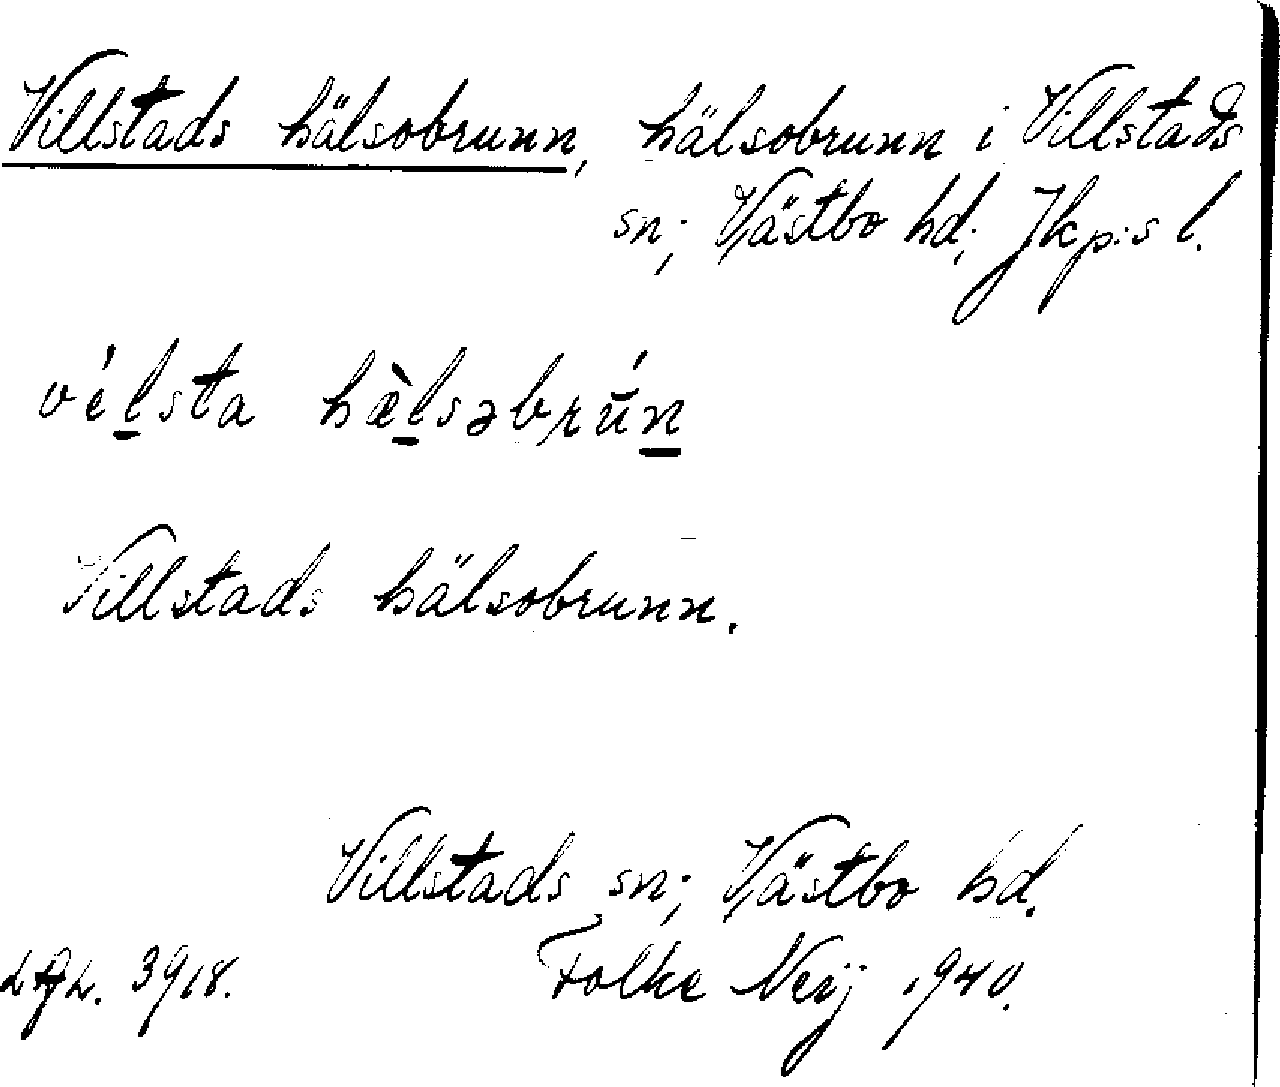 Villstads hälsobrunn, hälsobrunn i Villstads
sn; Västbo hd; Jkp:s l.
vélsta hæ̀lsəbrún
Villstads hälsobrunn.
Villstads sn; Västbo hd.
3918. Folke Nerij 1940.